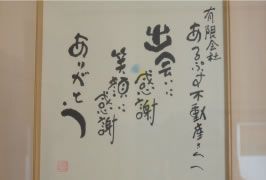 有限会社
あるぷす不動産さんへ
出会いに
感謝
笑顔に
感謝
ありがとう